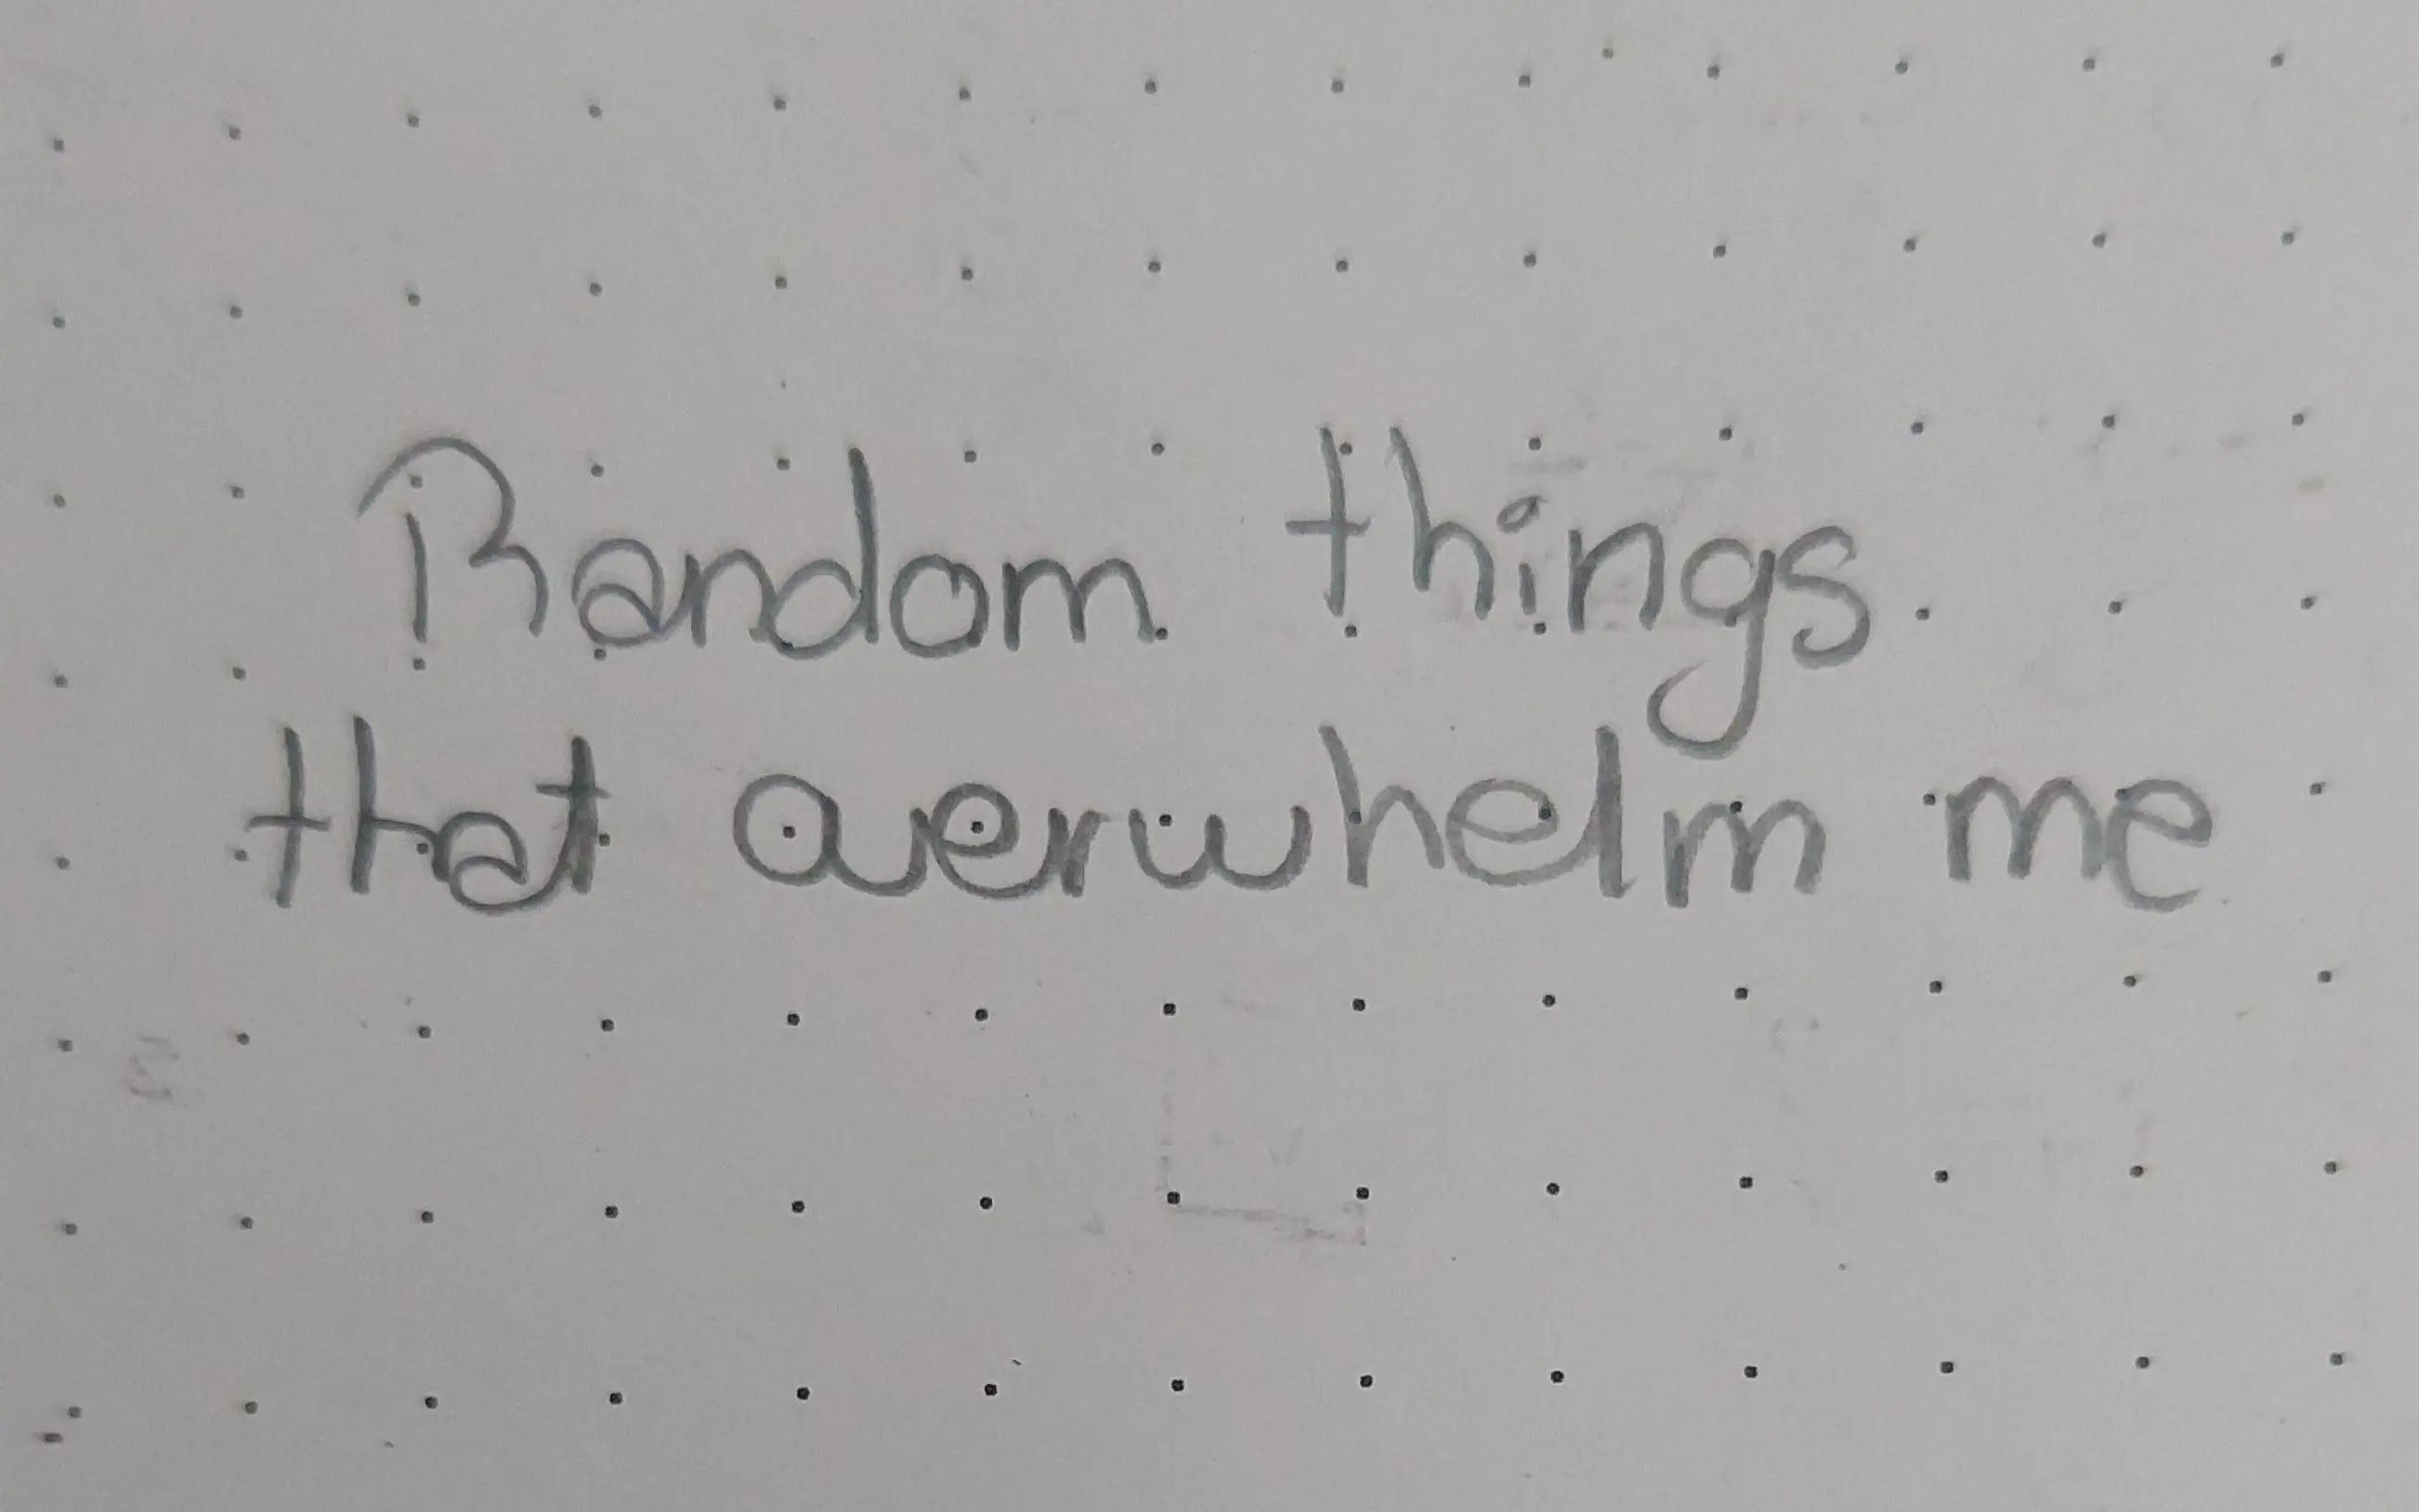 Random things
that overwhelm me